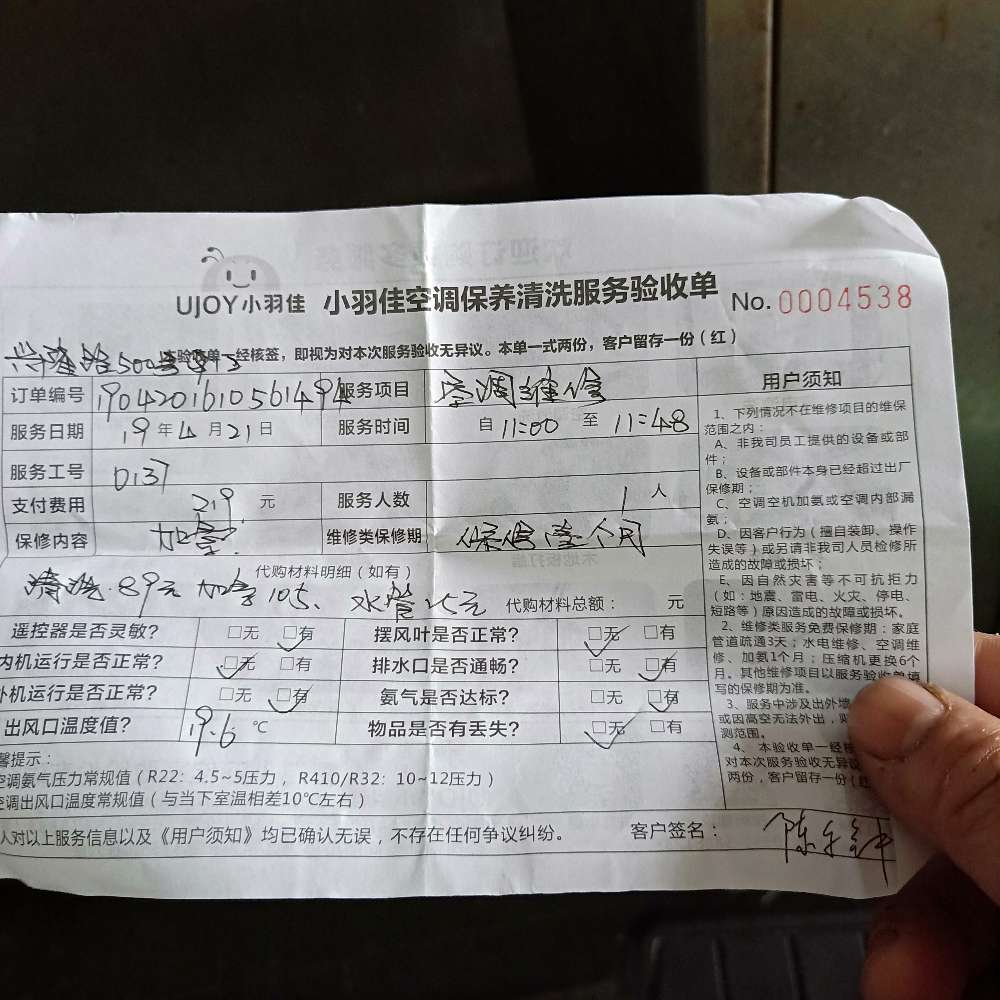 UJOY小羽佳 小羽佳空调保养清洗服务验收单 No. 0004538
验收单一经核签，即视为对本次服务验收无异议。本单一式两份，客户留存一份（红）
500
订单编号 1904201610561494 服务项目 空调维修
服务日期 19 年 4 月 21 日 服务时间 自 11:00 至 11:48
服务工号 0137
支付费用 219 元 服务人数 1 人
保修内容 加氨 维修类保修期 保修壹个月
清洗.89元 加氨105、水管25元
代购材料明细（如有） 代购材料总额： 元
遥控器是否灵敏? □无 □有 摆风叶是否正常? □无 □有
内机运行是否正常? □无 □有 排水口是否通畅? □无 □有
外机运行是否正常? □无 □有 氨气是否达标? □无 □有
出风口温度值? 19.6 ℃ 物品是否有丢失? □无 □有
馨提示：
空调氨气压力常规值（R22：4.5~5压力，R410/R32：10~12压力）
空调出风口温度常规值（与当下室温相差10℃左右）
人对以上服务信息以及《用户须知》均已确认无误，不存在任何争议纠纷。 客户签名：
用户须知
1、下列情况不在维修项目的维保
范围之内：
A、非我司员工提供的设备或部
件；
B、设备或部件本身已经超过出厂
保修期；
C、空调空机加氨或空调内部漏
氨；
D、因客户行为（擅自装卸、操作
失误等）或另请非我司人员检修所
造成的故障或损坏；
E、因自然灾害等不可抗拒力
（如：地震、雷电、火灾、停电、
短路等）原因造成的故障或损坏。
2、维修类服务免费保修期：家庭
管道疏通3天；水电维修、空调维
修、加氨1个月；压缩机更换6个
月。其他维修项目以服务验收单填
写的保修期为准。
3、服务中涉及出外墙
或因高空无法外出，则
测范围。
4、本验收单一经核
对本次服务验收无异议
两份，客户留存一份（红